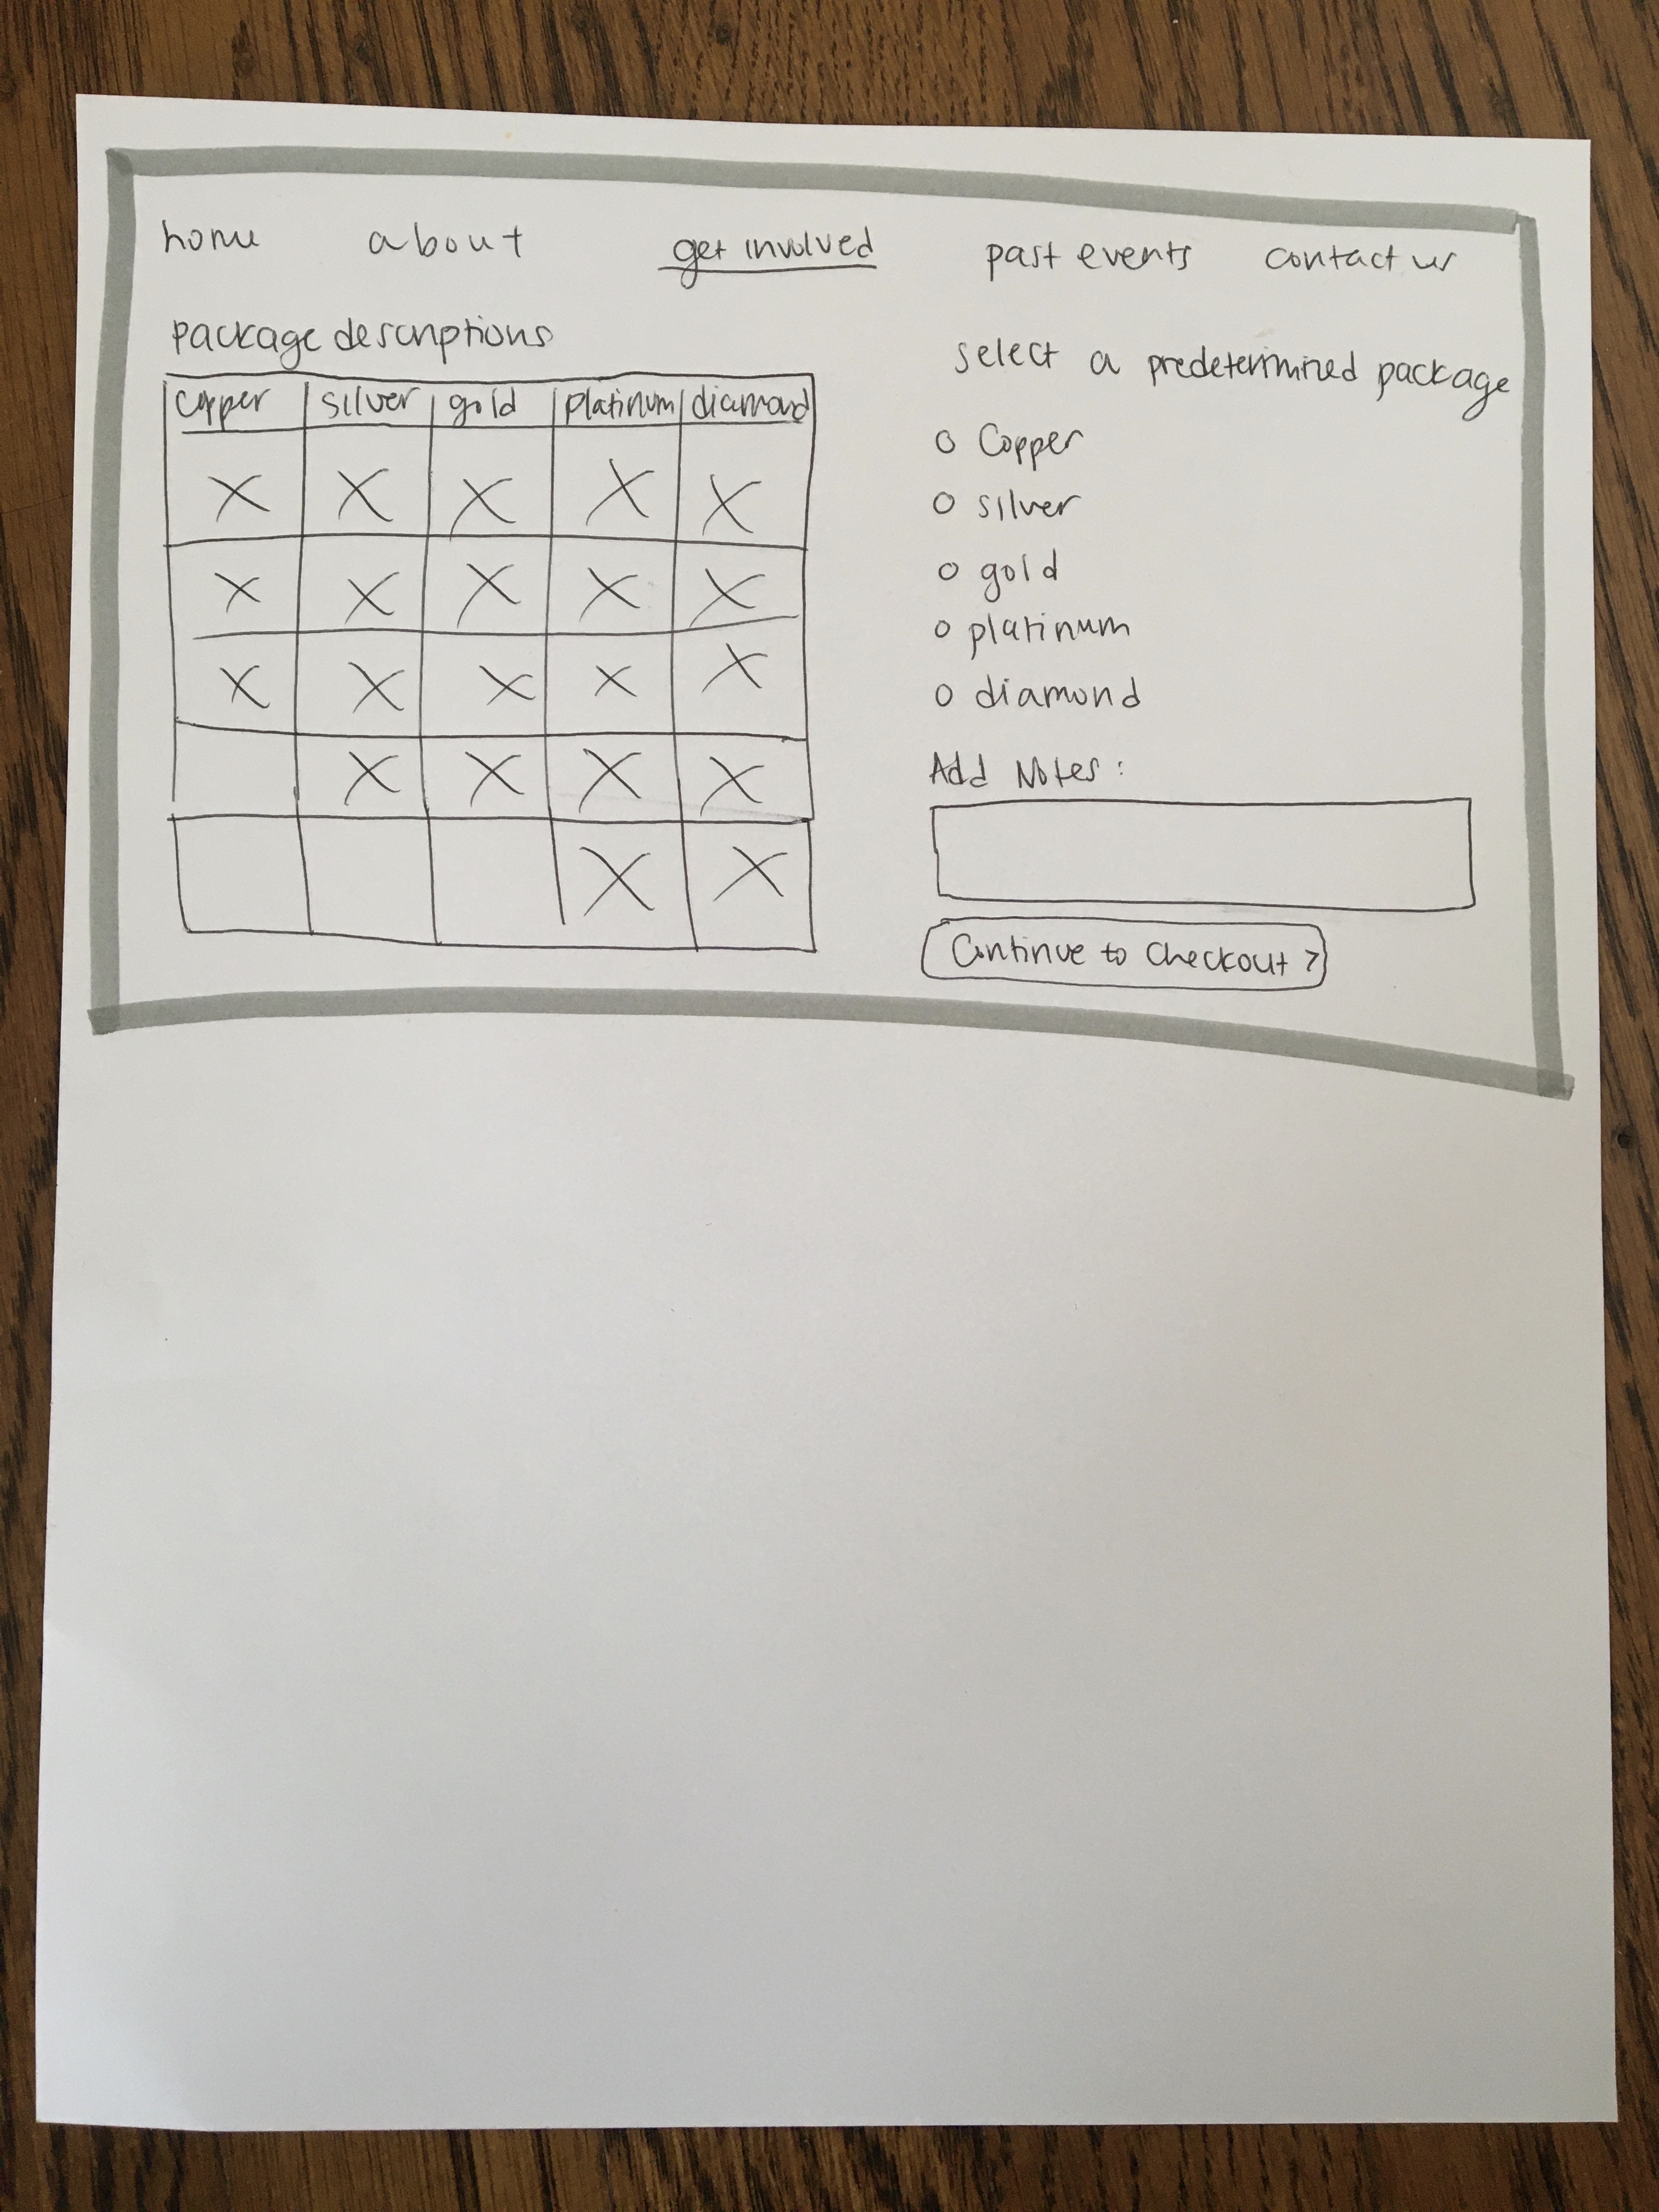 home about get involved past events contact us
package descriptions
copper silver gold platinum diamond
X X X X X
X X X X X
X X X X X
X X X X
X X
select a predetermined package
O Copper
O silver
O gold
O platinum
O diamond
Add Notes:
Continue to Checkout >